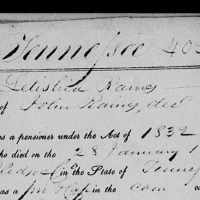 Tennessee 40
Letishea Rainey
of John Rainey decd
as a pensioner under the Act of 1832
who died on the 28 January 1
in the State of Tenne
as a in the